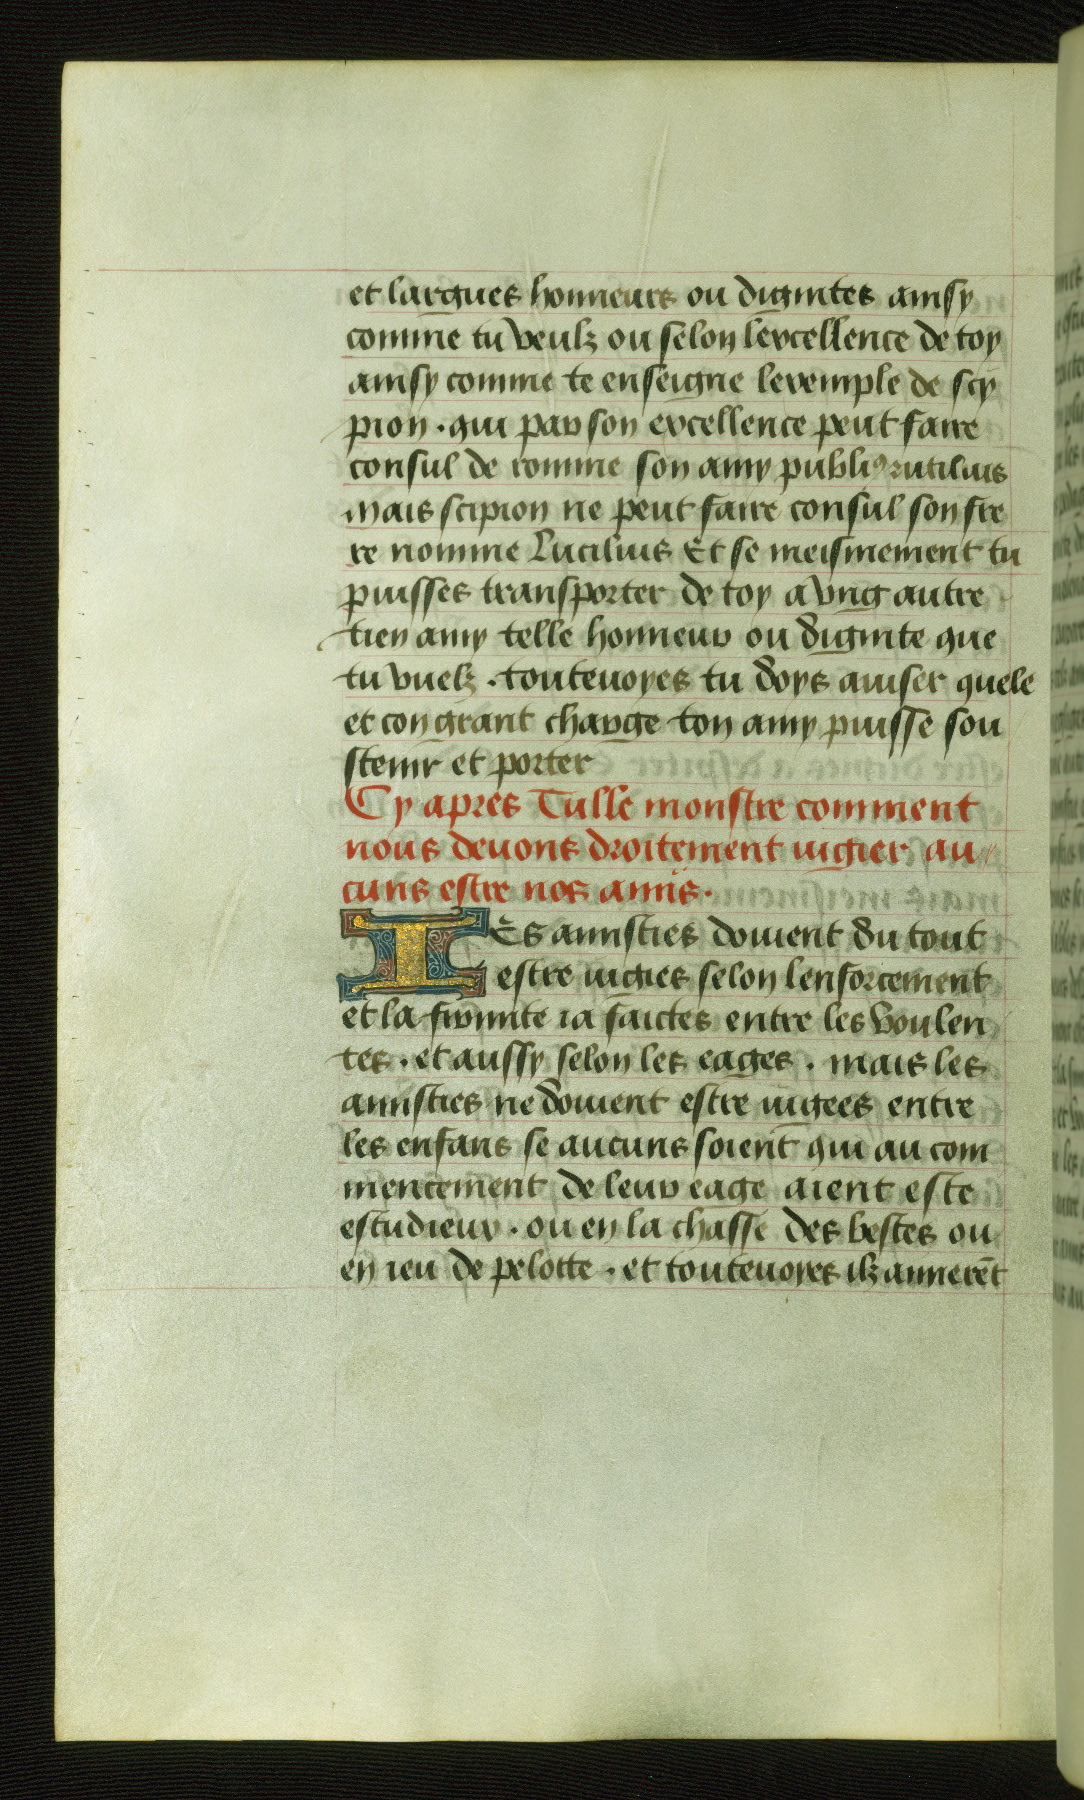 et largues honneurs ou dignites ainsy
comme tu veulz ou selon lexcellence de toy
ainsy comme te enseigne lexemple de scy
pion . qui par son excellence peut faire
consul de romme son amy publiꝰ rutilius
mais scipion ne peut faire consul son fre
re nomme Lucilius Et se meismement tu
puisses transporter de toy a vng autre
tien amy telle honneur ou dignite que
tu vuelz . toutevoyes tu doys auiser quele
et con grant charge ton amy puisse sou
stenir et porter
Cy apres Tulle monstre comment
nous deuons droitement iugier au
cuns estre nos amis .
LEs amisties doiuent du tout
estre iugies selon lenforcement
et la fermite ia faictes entre les voulen
tes . et aussy selon les eages . mais les
amisties ne doiuent estre iugees entre
les enfans se aucuns soient qui au com
mencement de leur eage aient este
estudieux . ou en la chasse des bestes ou
en ieu de pelotte . et toutevoyes ilz aimerēt